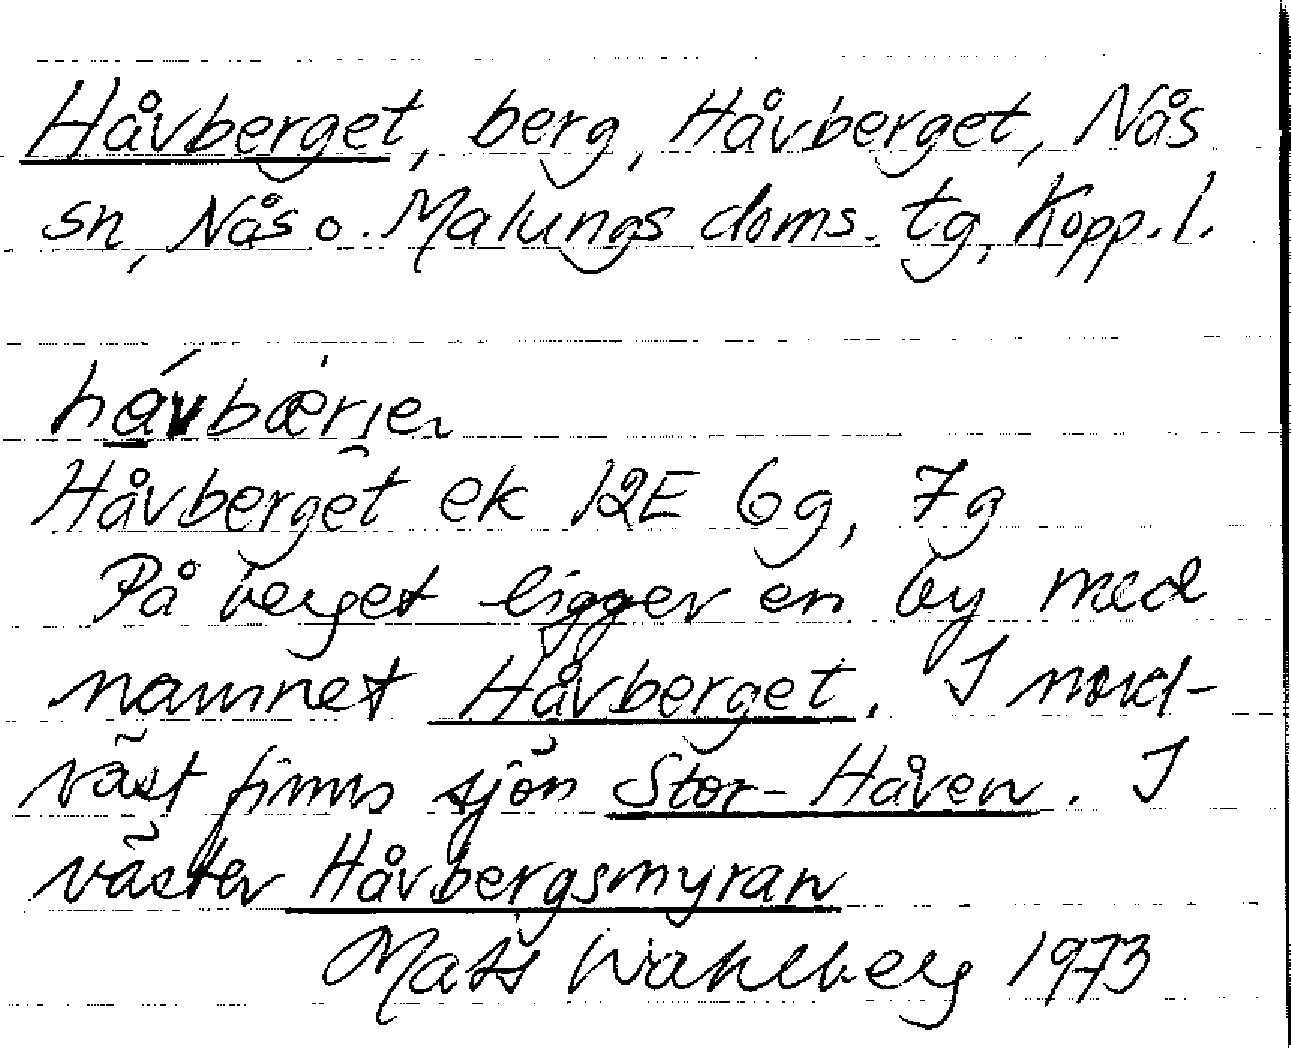 Håvberget, berg, Håvberget, Nås
sn, Nås o. Malungs doms. tg, Kopp. l.
håvbærjen
Håvberget ek 12E 6g, 7g
På berget ligger en by med
namnet Håvberget. I nord-
väst finns sjön Stor-Håven. I
väster Håvbergsmyran
Mats Wahlberg 1973